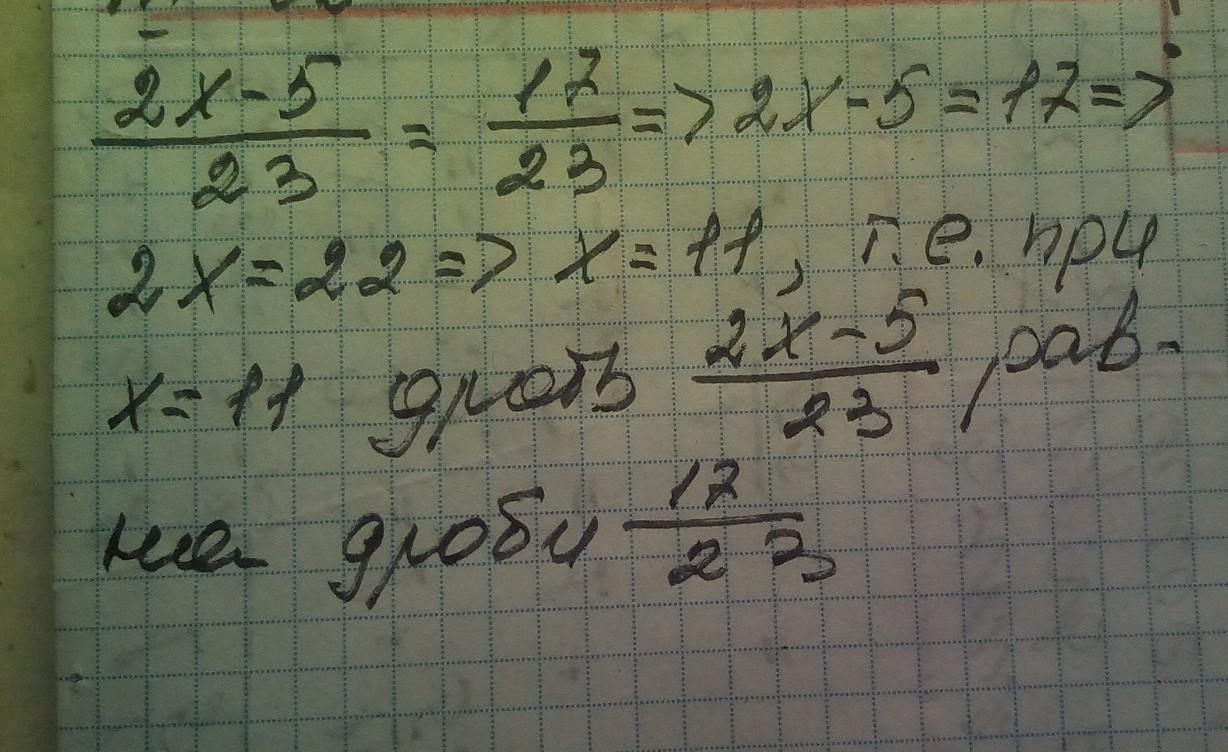 2x-5/23 = 17/23 => 2x-5=17 =>
2x=22 => x=11, т.е. при
x=11 дробь 2x-5/23 рав-
на дроби 17/23